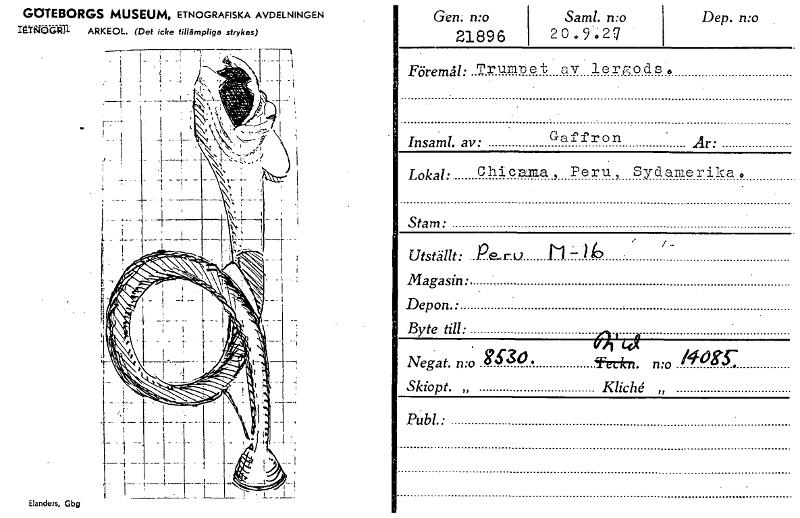 GÖTEBORGS MUSEUM, ETNOGRAFISKA AVDELNINGEN
ETNOGR. ARKEOL. (Det icke tillämpliga strykes)
Elanders, Gbg
Gen. n:o Saml. n:o Dep. n:o
21896 20.9.27
Föremål: Trumpet av lergods.
Insaml. av: Gaffron År:
Lokal: Chicama, Peru, Sydamerika.
Stam:
Utställt: Peru M-16
Magasin:
Depon.:
Byte till:
Negat. n:o 8530. Teckn. n:o 14085.
Skiopt. „ Kliché „
Publ.: